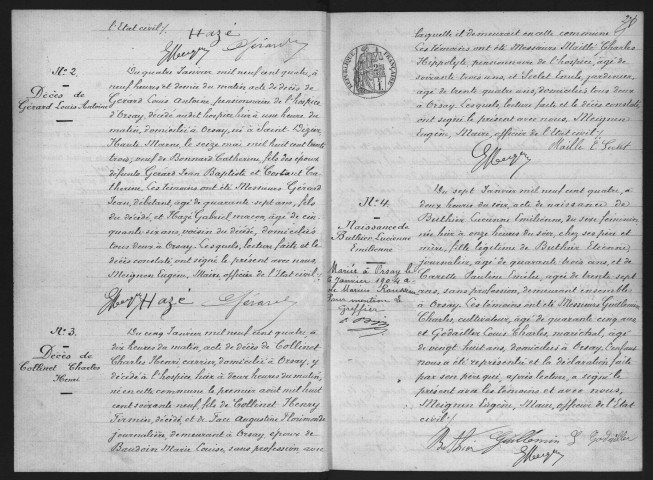 l'Etat civil /.
Hazé
Gérard
N° 2.
Décès de
Gérard Louis Antoine
Du quatre Janvier mil neuf cent quatre, à
neuf heures et demie du matin, acte de décès de
Gérard Louis Antoine, pensionnaire de l'hospice
d'Orsay, décédé audit hospice hier à une heure du
matin, domicilié à Orsay, né à Saint
Haute Marne, le seize mai mil huit cent
trois, veuf de Bonnard Catherine, fils des époux
défunts Gérard Jean Baptiste et Ca-
therine. Les témoins ont été Messieurs Gérard
Jean, débitant, âgé de quarante sept ans, fils
du décédé, et Hazé Gabriel, maçon, âgé de cin-
quante six ans, voisin du décédé, domiciliés
tous deux à Orsay. Lesquels, lecture faite et le
décès constaté ont signé le présent avec nous,
Meignen Eugène, Maire, officier de l'Etat civil /.
Hazé
Gérard
N° 3.
Décès de
Collinet Charles
Henri
Du cinq Janvier mil neuf cent quatre, à
dix heures du matin, acte de décès de Collinet
Charles Henri carrier, domicilié à Orsay, y
décédé à l'hospice, hier à deux heures du matin,
né en cette commune le premier août mil huit
cent soixante neuf, fils de Collinet Henry
Firmin, décédé, et de Augustine
journalière, demeurant à Orsay, époux de
Baudoin Marie Louise, sans profession, avec
laquelle il demeurait en cette commune
Les témoins ont été Messieurs Maillé Charles
Hippolyte, pensionnaire de l'hospice, âgé de
soixante trois ans, et Emile, jardinier,
âgé de trente quatre ans, domiciliés tous deux
à Orsay. Lesquels, lecture faite et le décès constaté
ont signé le présent avec nous, Meignen
Eugène, Maire, officier de l'Etat civil /.
Maillé
REPUBLIQUE FRANÇAISE
N° 4.
Naissance de
Buthier Lucienne
Emilienne
Mariée à Orsay le
Janvier
Pour mention
Le Greffier
Du sept Janvier mil neuf cent quatre, à
deux heures du soir, acte de naissance de
Buthier Lucienne Emilienne, du sexe féminin
née hier à onze heures du soir, chez ses père et
mère, fille légitime de Buthier Etienne
journalier, âgé de quarante trois ans, et de
Pauline âgée de trente sept
ans, sans profession, demeurant ensemble
à Orsay. Les témoins ont été Messieurs Guillemin
Charles, cultivateur, âgé de quarante cinq ans
et Godailler Louis Charles maréchal, âgé
de vingt huit ans, domiciliés à Orsay. L'enfant
nous a été représentée et la déclaration faite
par son père qui, après lecture, a signé le
présent avec les témoins et avec nous,
Meignen Eugène, Maire, officier de l'Etat
civil /.
Buthier Guillemin L Godailler